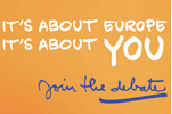 IT'S ABOUT EUROPE
IT'S ABOUT YOU
Join the debate